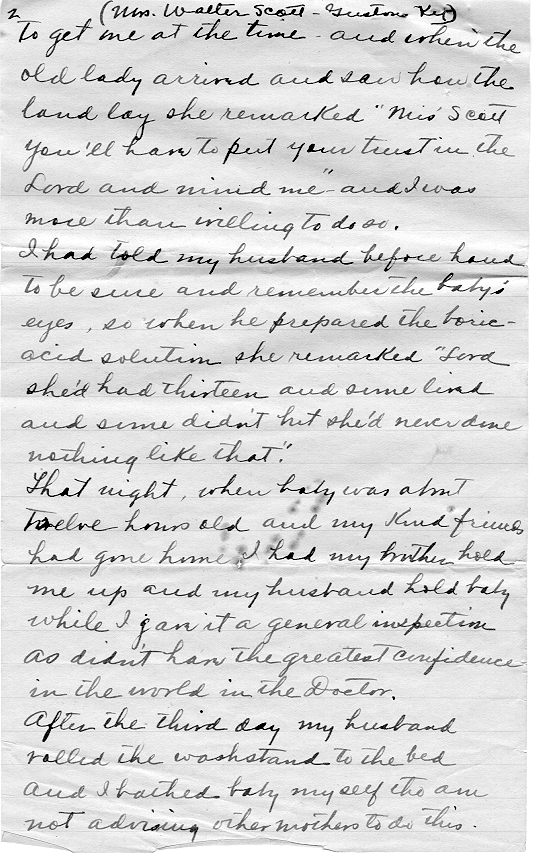 2 (Mrs. Walter Scott - Guston Ky)
To get me at the time - and when the
old lady arrived and saw how the
land lay she remarked "Mis' Scott
you'll have to put your trust in the
Lord and mind me" - and I was
more than willing to do so.
I had told my husband before hand
to be sure and remember the baby's
eyes, so when he prepared the boric-
acid solution she remarked "Lord
she'd had thirteen and some lived
and some didn't but she'd never done
nothing like that."
That night, when baby was about
twelve hours old and my Kind friends
had gone home, I had my brother hold
me up and my husband hold baby
while I gave it a general inspection
as didn't have the greatest confidence
in the world in the Doctor.
After the third day my husband
rolled the washstand to the bed
and I bathed baby myself tho am
not advising other mothers to do this.